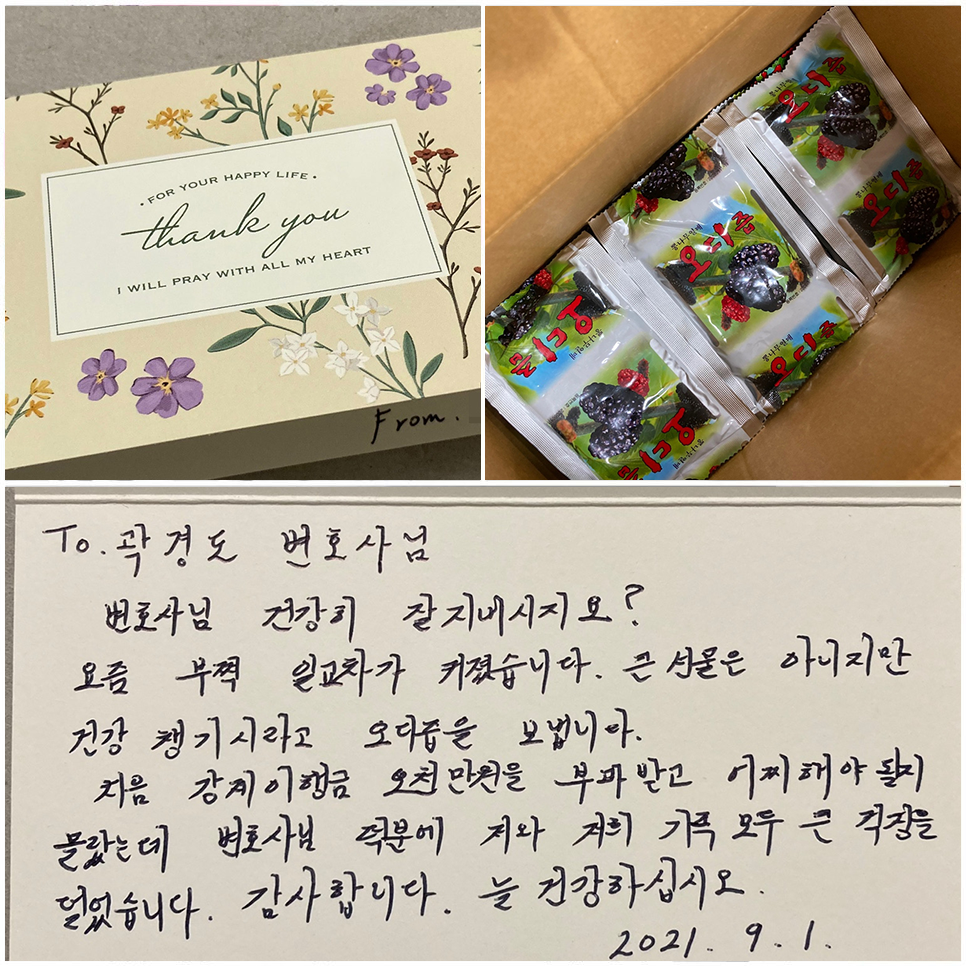 · FOR YOUR HAPPY LIFE ·
thank you
I WILL PRAY WITH ALL MY HEART
From.
오디즙
오디즙
뽕나무열매
오디즙
오디즙
오디즙
오디즙
To. 곽경도 변호사님
변호사님 건강히 잘지내시지요?
요즘 부쩍 일교차가 커졌습니다. 큰 선물은 아니지만
건강 챙기시라고 오디즙을 보냅니다.
처음 강제이행금 오천만원을 부과받고 어찌해야 될지
몰랐는데 변호사님 덕분에 저와 저희 가족 모두 큰 걱정을
덜었습니다. 감사합니다. 늘 건강하십시오.
2021. 9. 1.